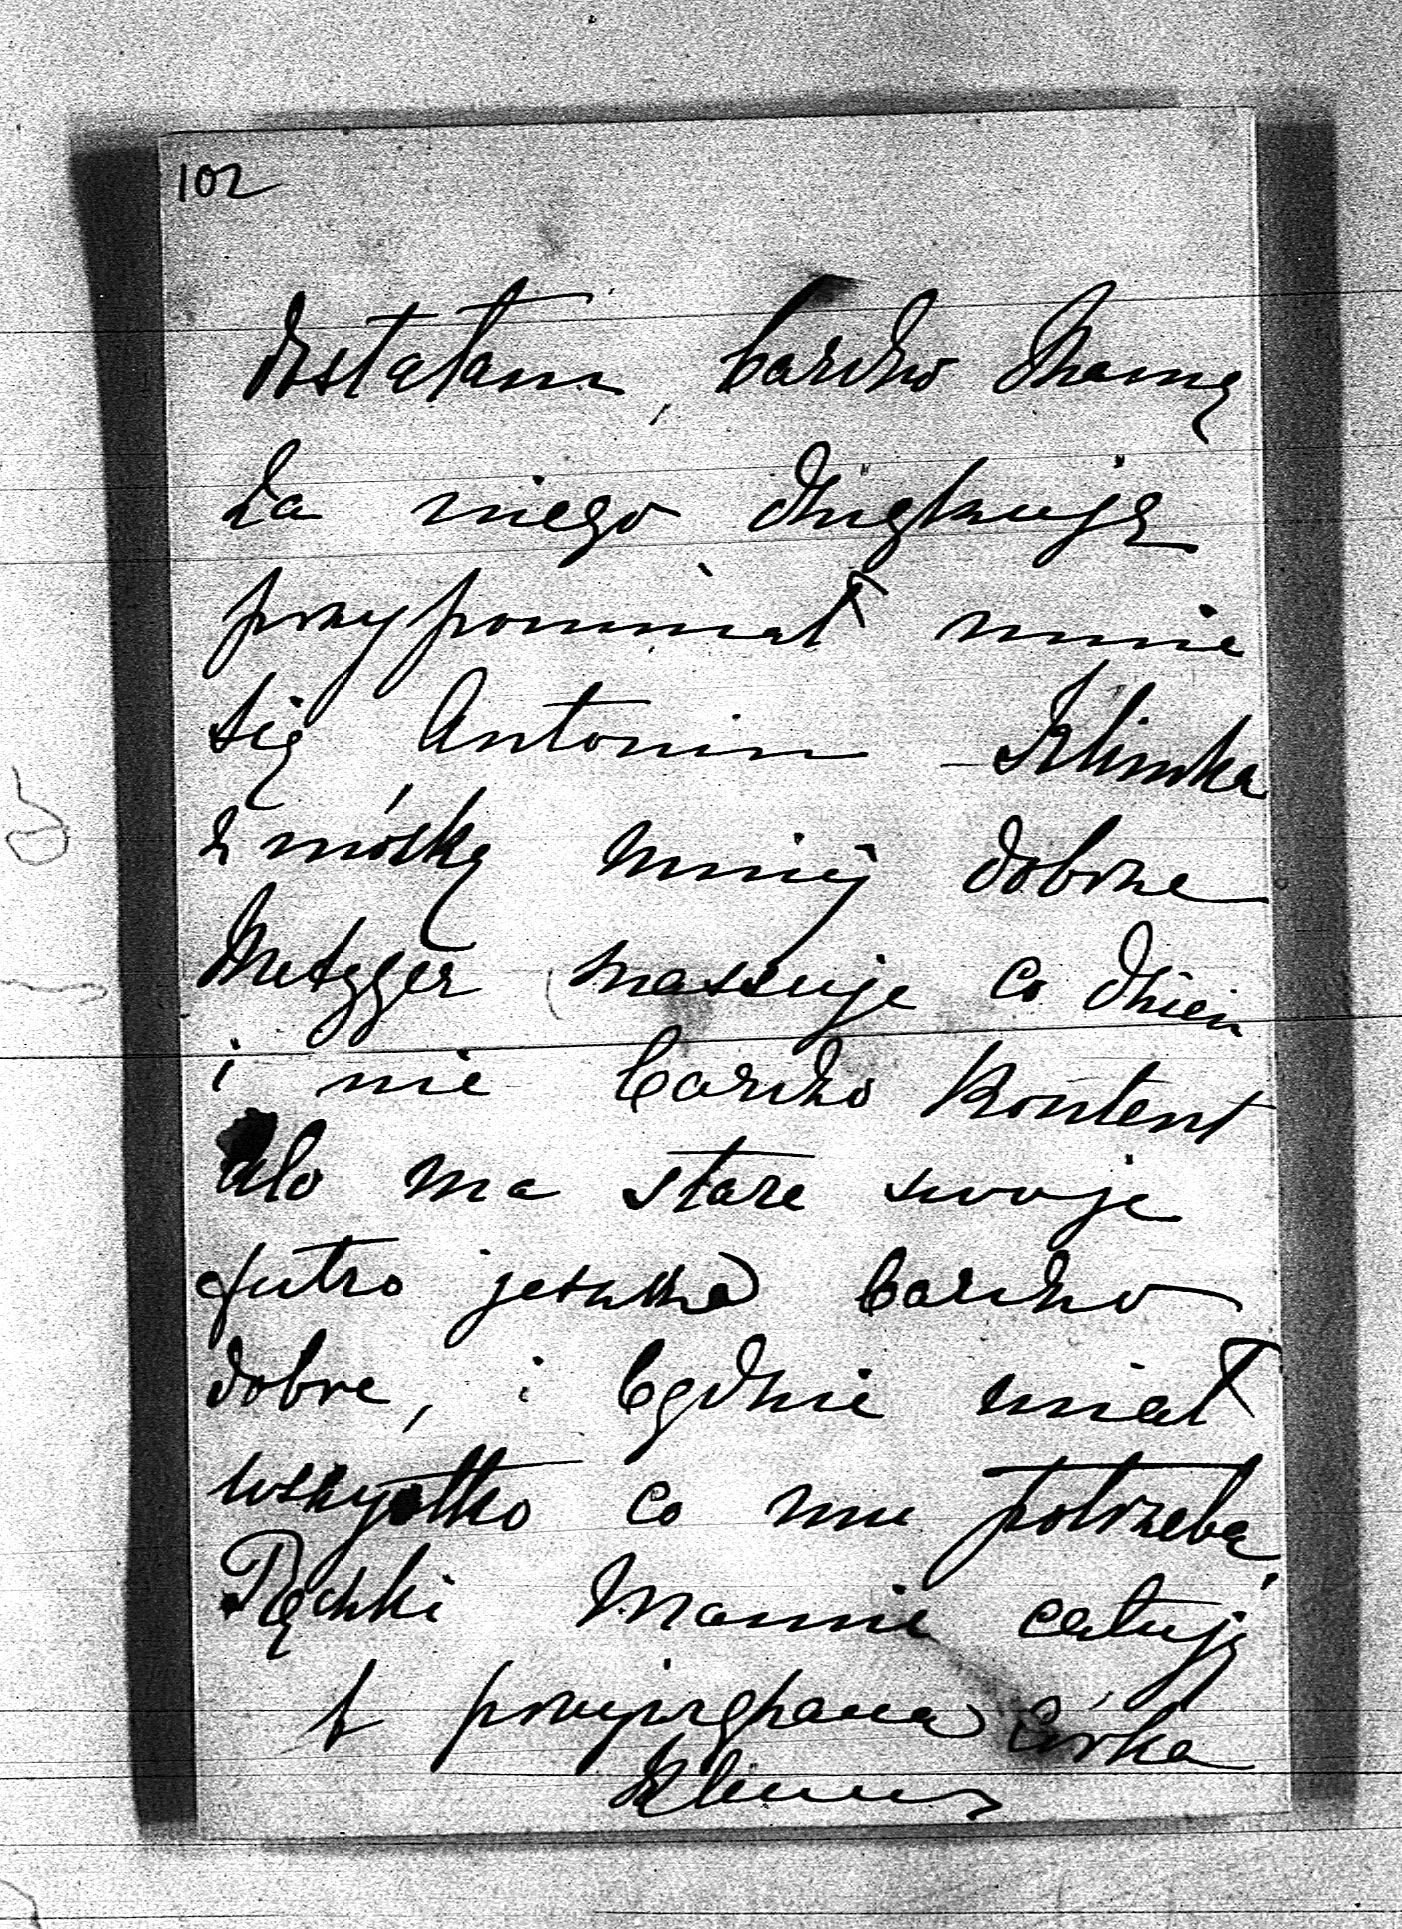 102
dostałam, bardzo Mamę
za niego dziękuję
przypomniał mnie
się Antonin Klimka
z nóżką mniej dobrze
Metzger massuje co dzien
i nie bardzo kontent
Alo ma stare swoje
futro jeszcze bardzo
dobre, i będzie miał
wszystko co mu potrzeba,
Rączki Mamie całuję
t przywiązana Córka